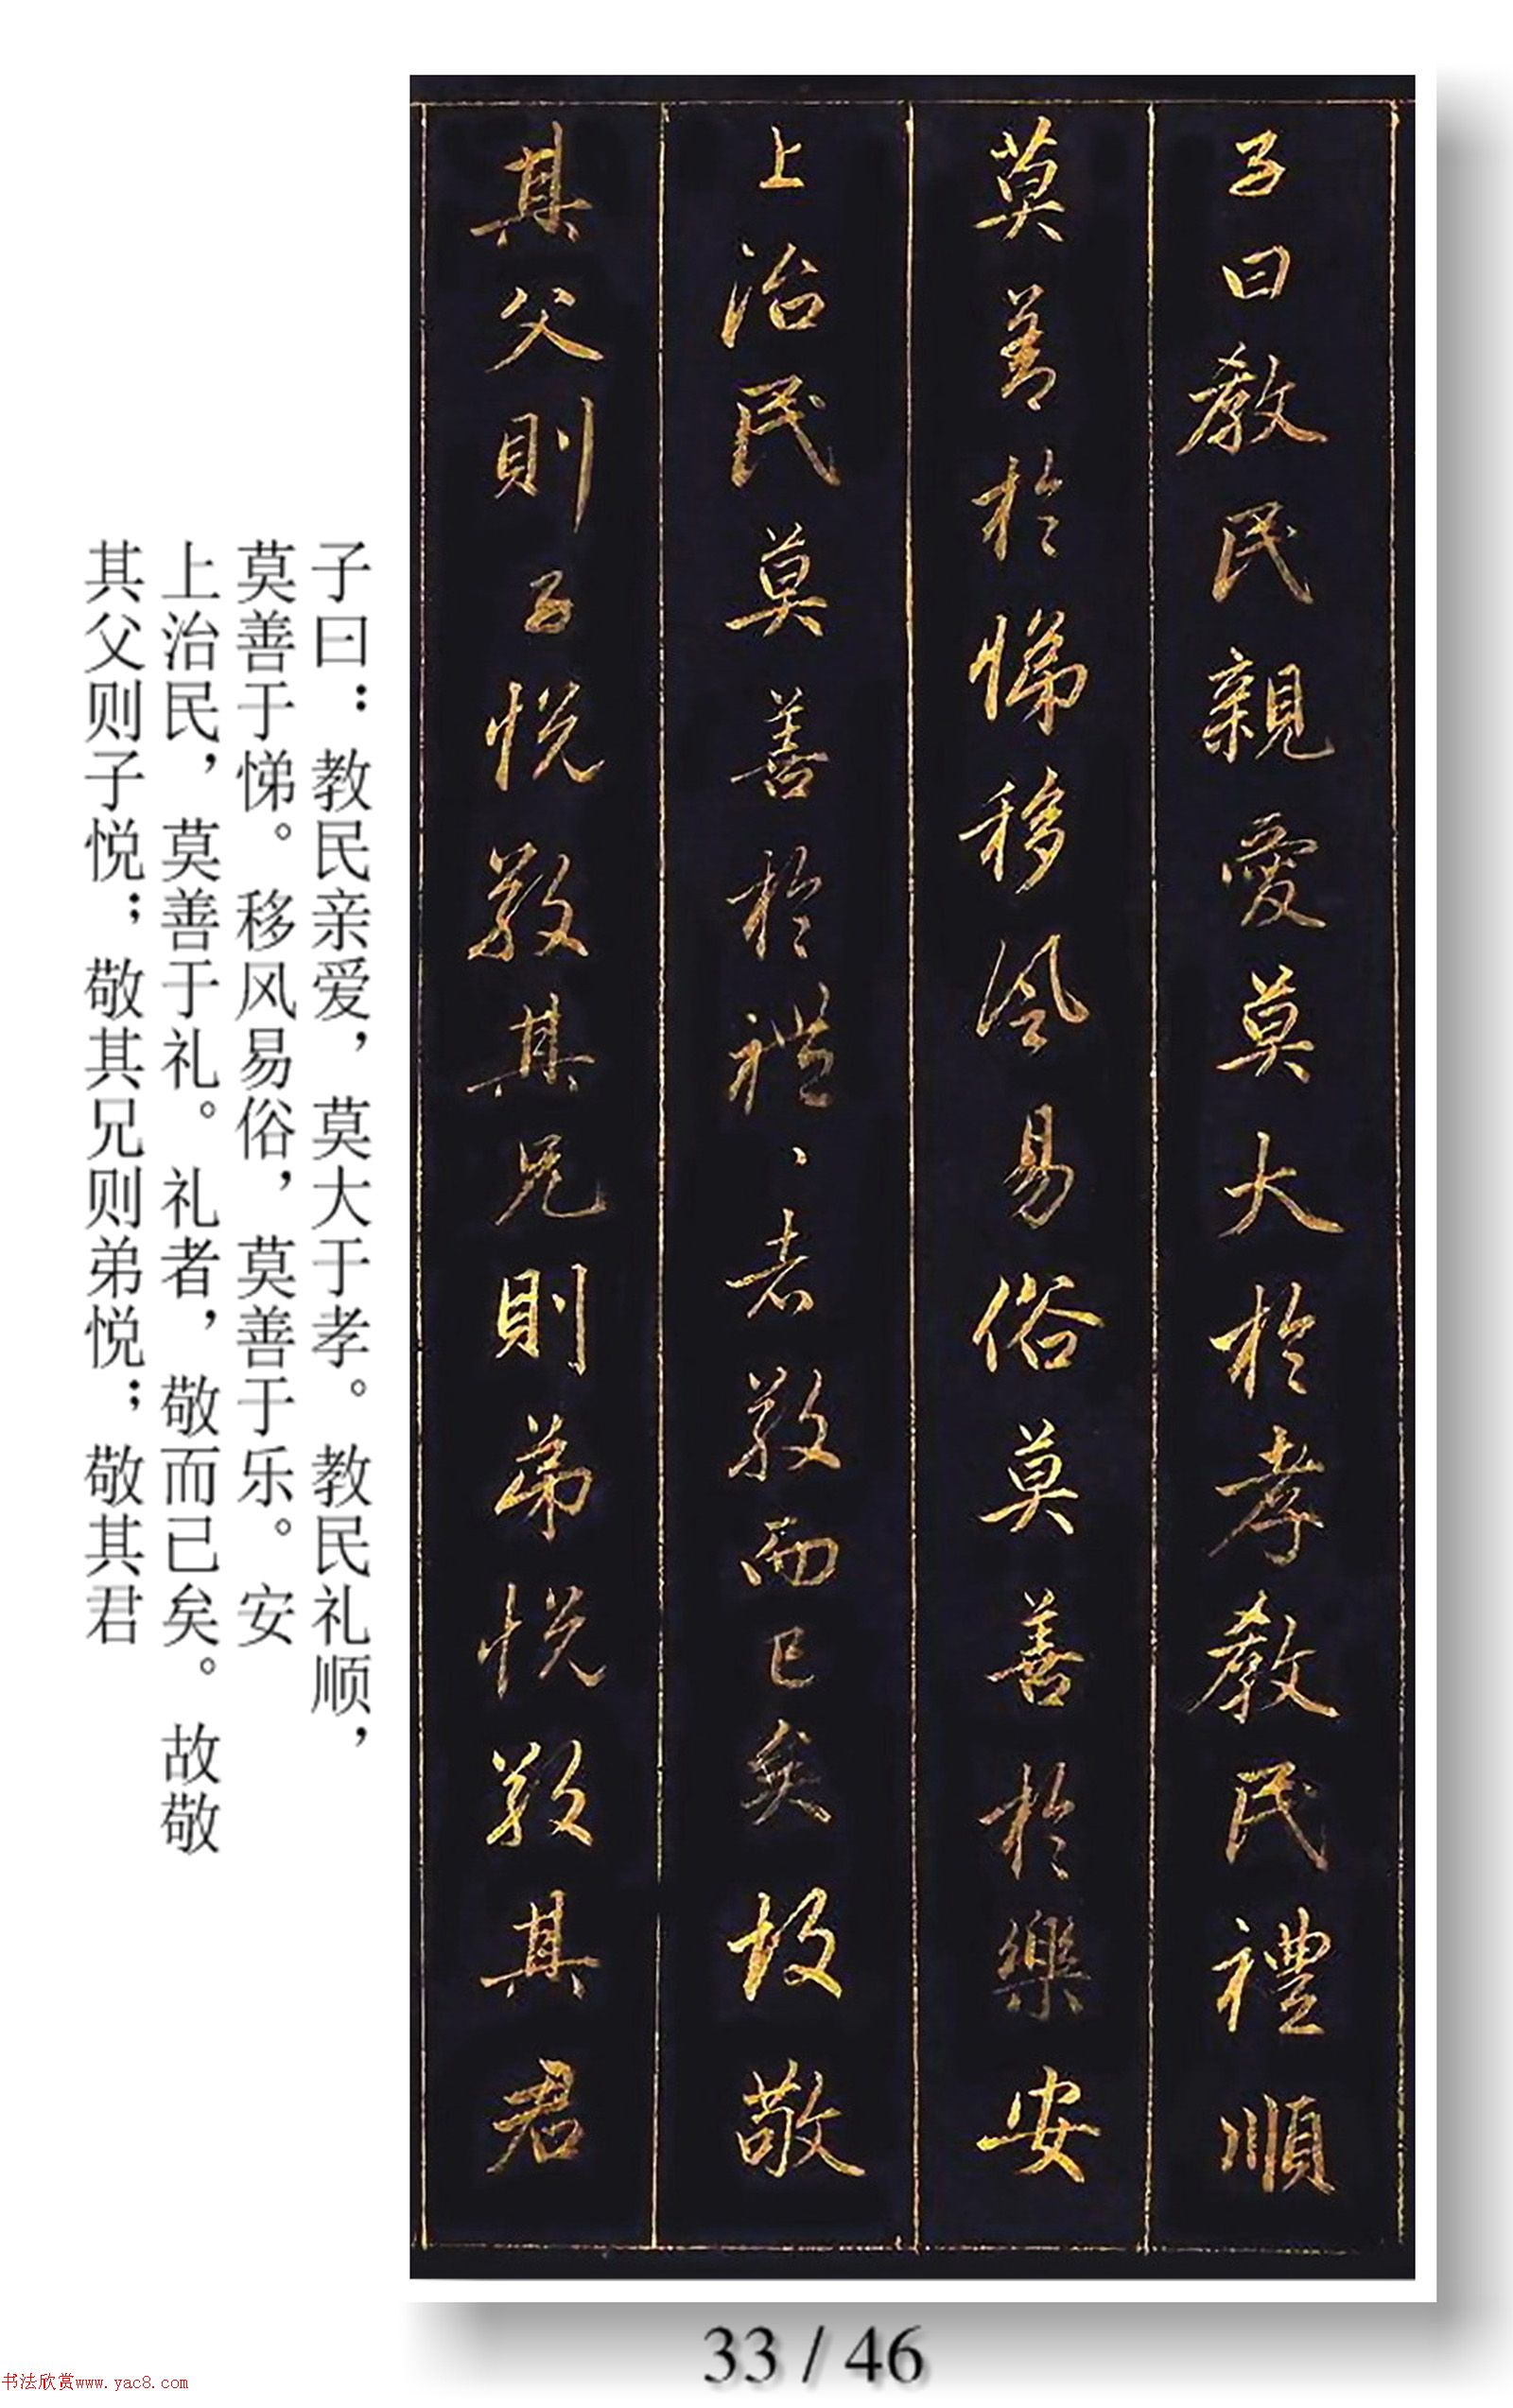 子曰教民親愛莫大於孝教民禮順
莫善於悌移風易俗莫善於樂安
上治民莫善於禮〻者敬而已矣故敬
其父則子悦敬其兄則弟悦敬其君
子曰：教民亲爱，莫大于孝。教民礼顺，
莫善于悌。移风易俗，莫善于乐。安
上治民，莫善于礼。礼者，敬而已矣。故敬
其父则子悦；敬其兄则弟悦；敬其君
33 / 46
书法欣赏www.yac8.com